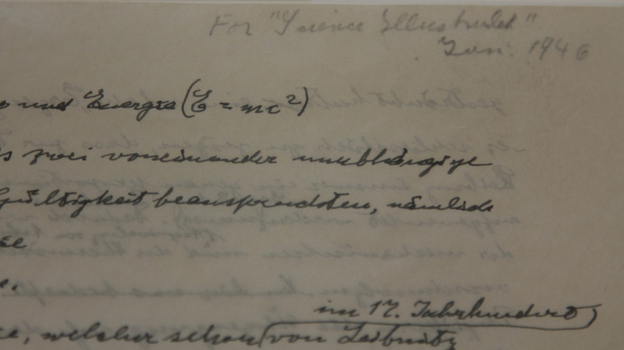 For "Science Illustrated"
Jan. 1946
und Energie (E = mc²)
zwei voneinander unabhängige
Gültigkeit beanspruchten, nämlich
im 17. Jahrhundert
welcher schon von Leibnitz